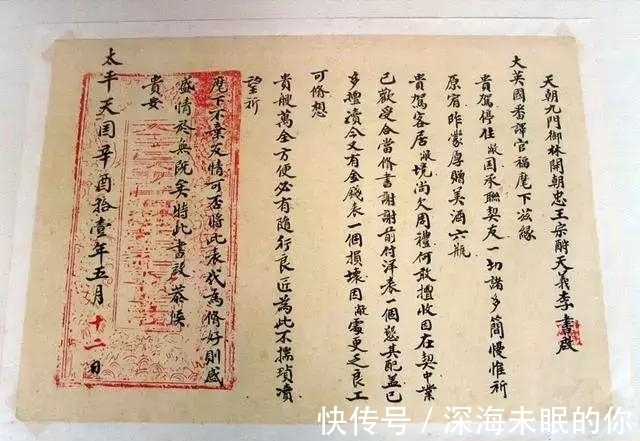 天朝九門御林開朝忠王宗㪰天義李書啟
大英國番譯官福麾下茲緣
貴駕停住敝囯承聯契友一切諸多簡慢惟祈
原宥昨蒙厚贈美酒六瓶
貴駕客居敝境尚欠周禮何敢擅收因在契中業
已歡受合當脩書謝謝前付洋表一個懇其配蓋已
多煙瀆今又有金錢表一個損壞因敝處更乏良工
可脩想
貴艘萬全方便必有隨行良匠為此不揣瑣瀆
望祈
麾下不棄友情可否將此表代為脩好則感
盛情於無既矣特此書啟恭候
貴安
太平天囯辛酉拾壹年五月十二日
快传号／深海未眠的你